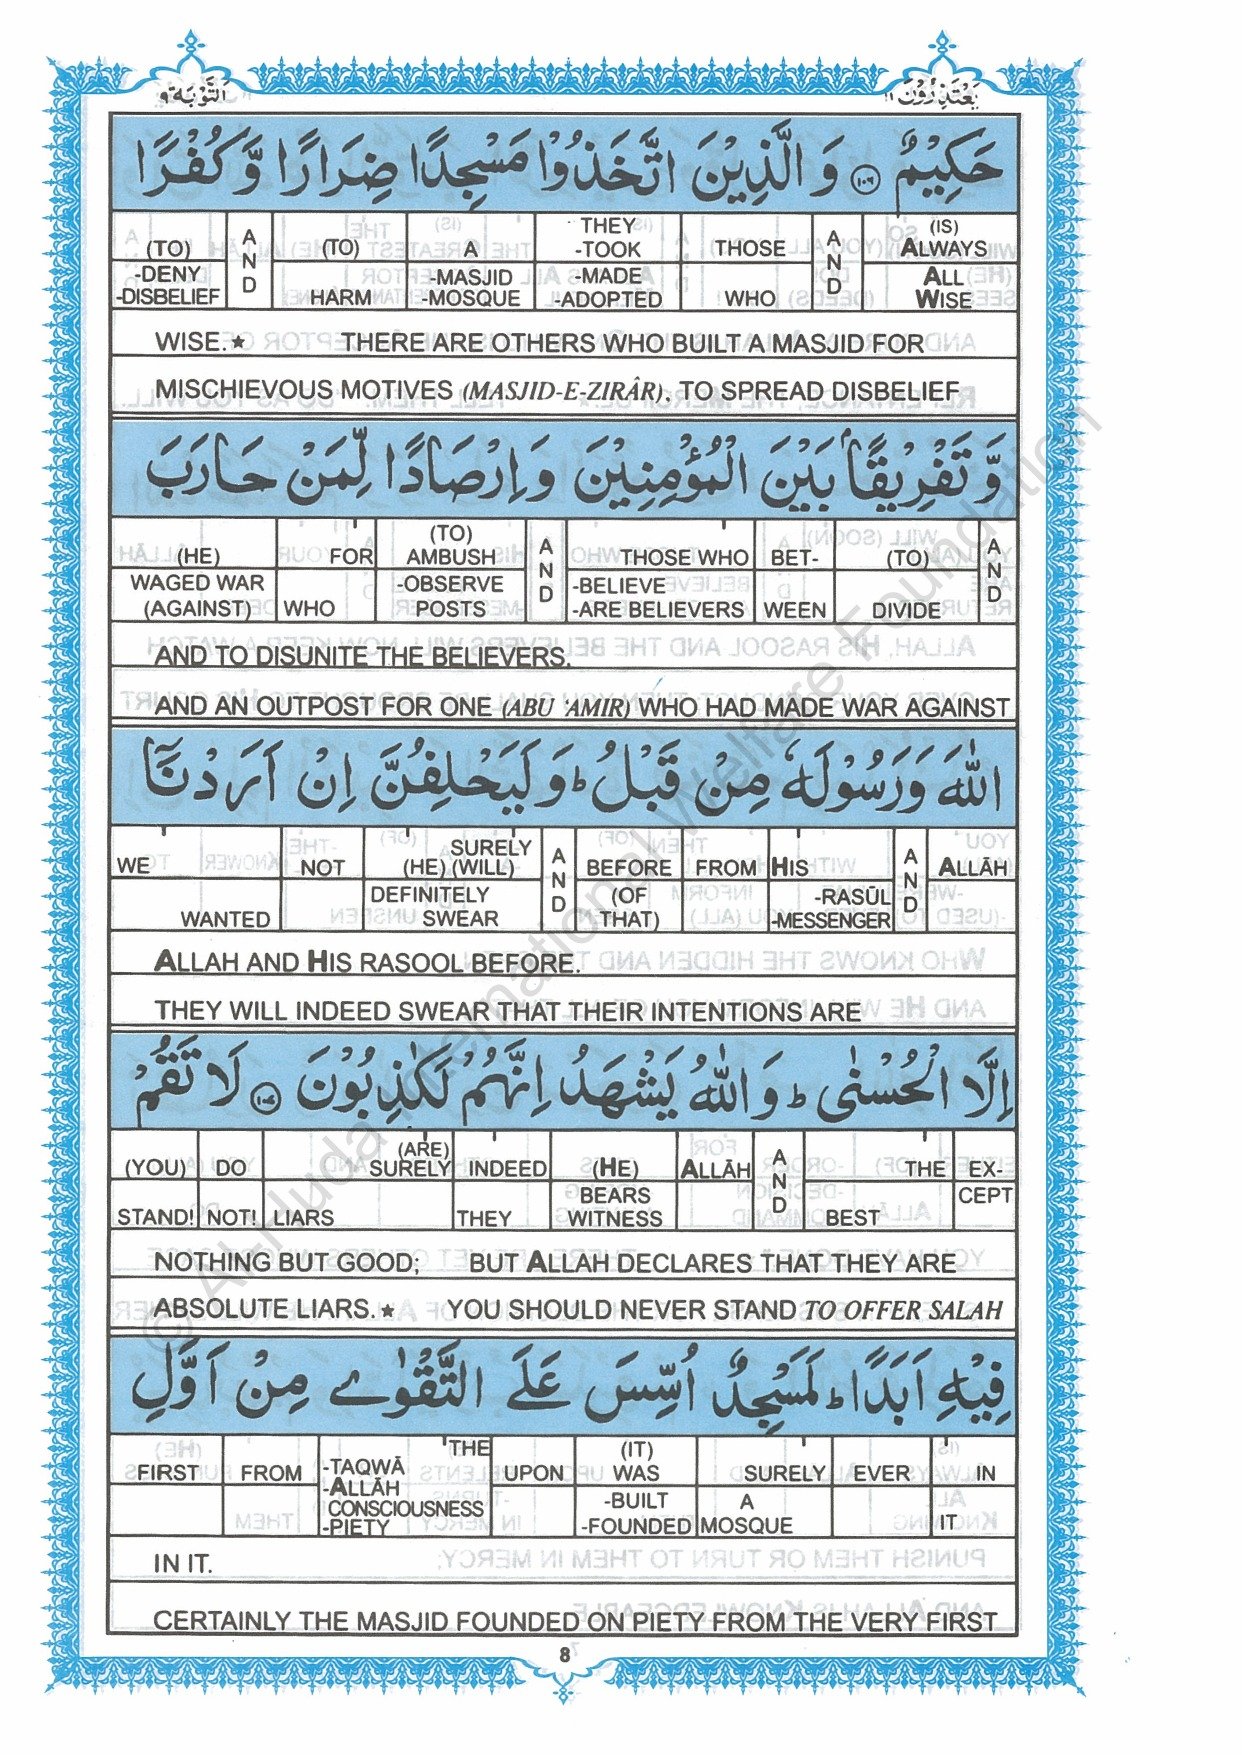 التَّوْبَة ٩ يَعْتَذِرُوْنَ ١١
حَكِيْمٌ ﴿١٠٦﴾ وَالَّذِيْنَ اتَّخَذُوْا مَسْجِدًا ضِرَارًا وَّكُفْرًا
(TO) AND (TO) A THEY -TOOK THOSE AND (IS) ALWAYS
-DENY -DISBELIEF HARM -MASJID -MOSQUE -MADE -ADOPTED WHO ALL WISE
WISE.★ THERE ARE OTHERS WHO BUILT A MASJID FOR
MISCHIEVOUS MOTIVES (MASJID-E-ZIRÂR), TO SPREAD DISBELIEF
وَّتَفْرِيْقًۢا بَيْنَ الْمُؤْمِنِيْنَ وَاِرْصَادًا لِّمَنْ حَارَبَ
(HE) FOR (TO) AMBUSH AND THOSE WHO BET- (TO) AND
WAGED WAR (AGAINST) WHO -OBSERVE POSTS -BELIEVE -ARE BELIEVERS WEEN DIVIDE
AND TO DISUNITE THE BELIEVERS.
AND AN OUTPOST FOR ONE (ABU ‘AMIR) WHO HAD MADE WAR AGAINST
اللّٰهَ وَرَسُوْلَهٗ مِنْ قَبْلُ ؕ وَلَيَحْلِفُنَّ اِنْ اَرَدْنَاۤ
WE NOT SURELY (HE) (WILL) AND BEFORE FROM HIS AND ALLĀH
WANTED DEFINITELY SWEAR (OF THAT) -RASŪL -MESSENGER
ALLAH AND HIS RASOOL BEFORE.
THEY WILL INDEED SWEAR THAT THEIR INTENTIONS ARE
اِلَّا الْحُسْنٰى ؕ وَاللّٰهُ يَشْهَدُ اِنَّهُمْ لَكٰذِبُوْنَ ﴿١٠٧﴾ لَا تَقُمْ
(YOU) DO (ARE) SURELY INDEED (HE) ALLĀH AND THE EX-
STAND! NOT! LIARS THEY BEARS WITNESS BEST CEPT
NOTHING BUT GOOD; BUT ALLAH DECLARES THAT THEY ARE
ABSOLUTE LIARS.★ YOU SHOULD NEVER STAND TO OFFER SALAH
فِيْهِ اَبَدًا ؕ لَمَسْجِدٌ اُسِّسَ عَلَى التَّقْوٰى مِنْ اَوَّلِ
FIRST FROM THE UPON (IT) WAS SURELY EVER IN
-TAQWĀ -ALLĀH CONSCIOUSNESS -PIETY -BUILT -FOUNDED A MOSQUE IT
IN IT.
CERTAINLY THE MASJID FOUNDED ON PIETY FROM THE VERY FIRST
8
© Al-Huda International Welfare Foundation